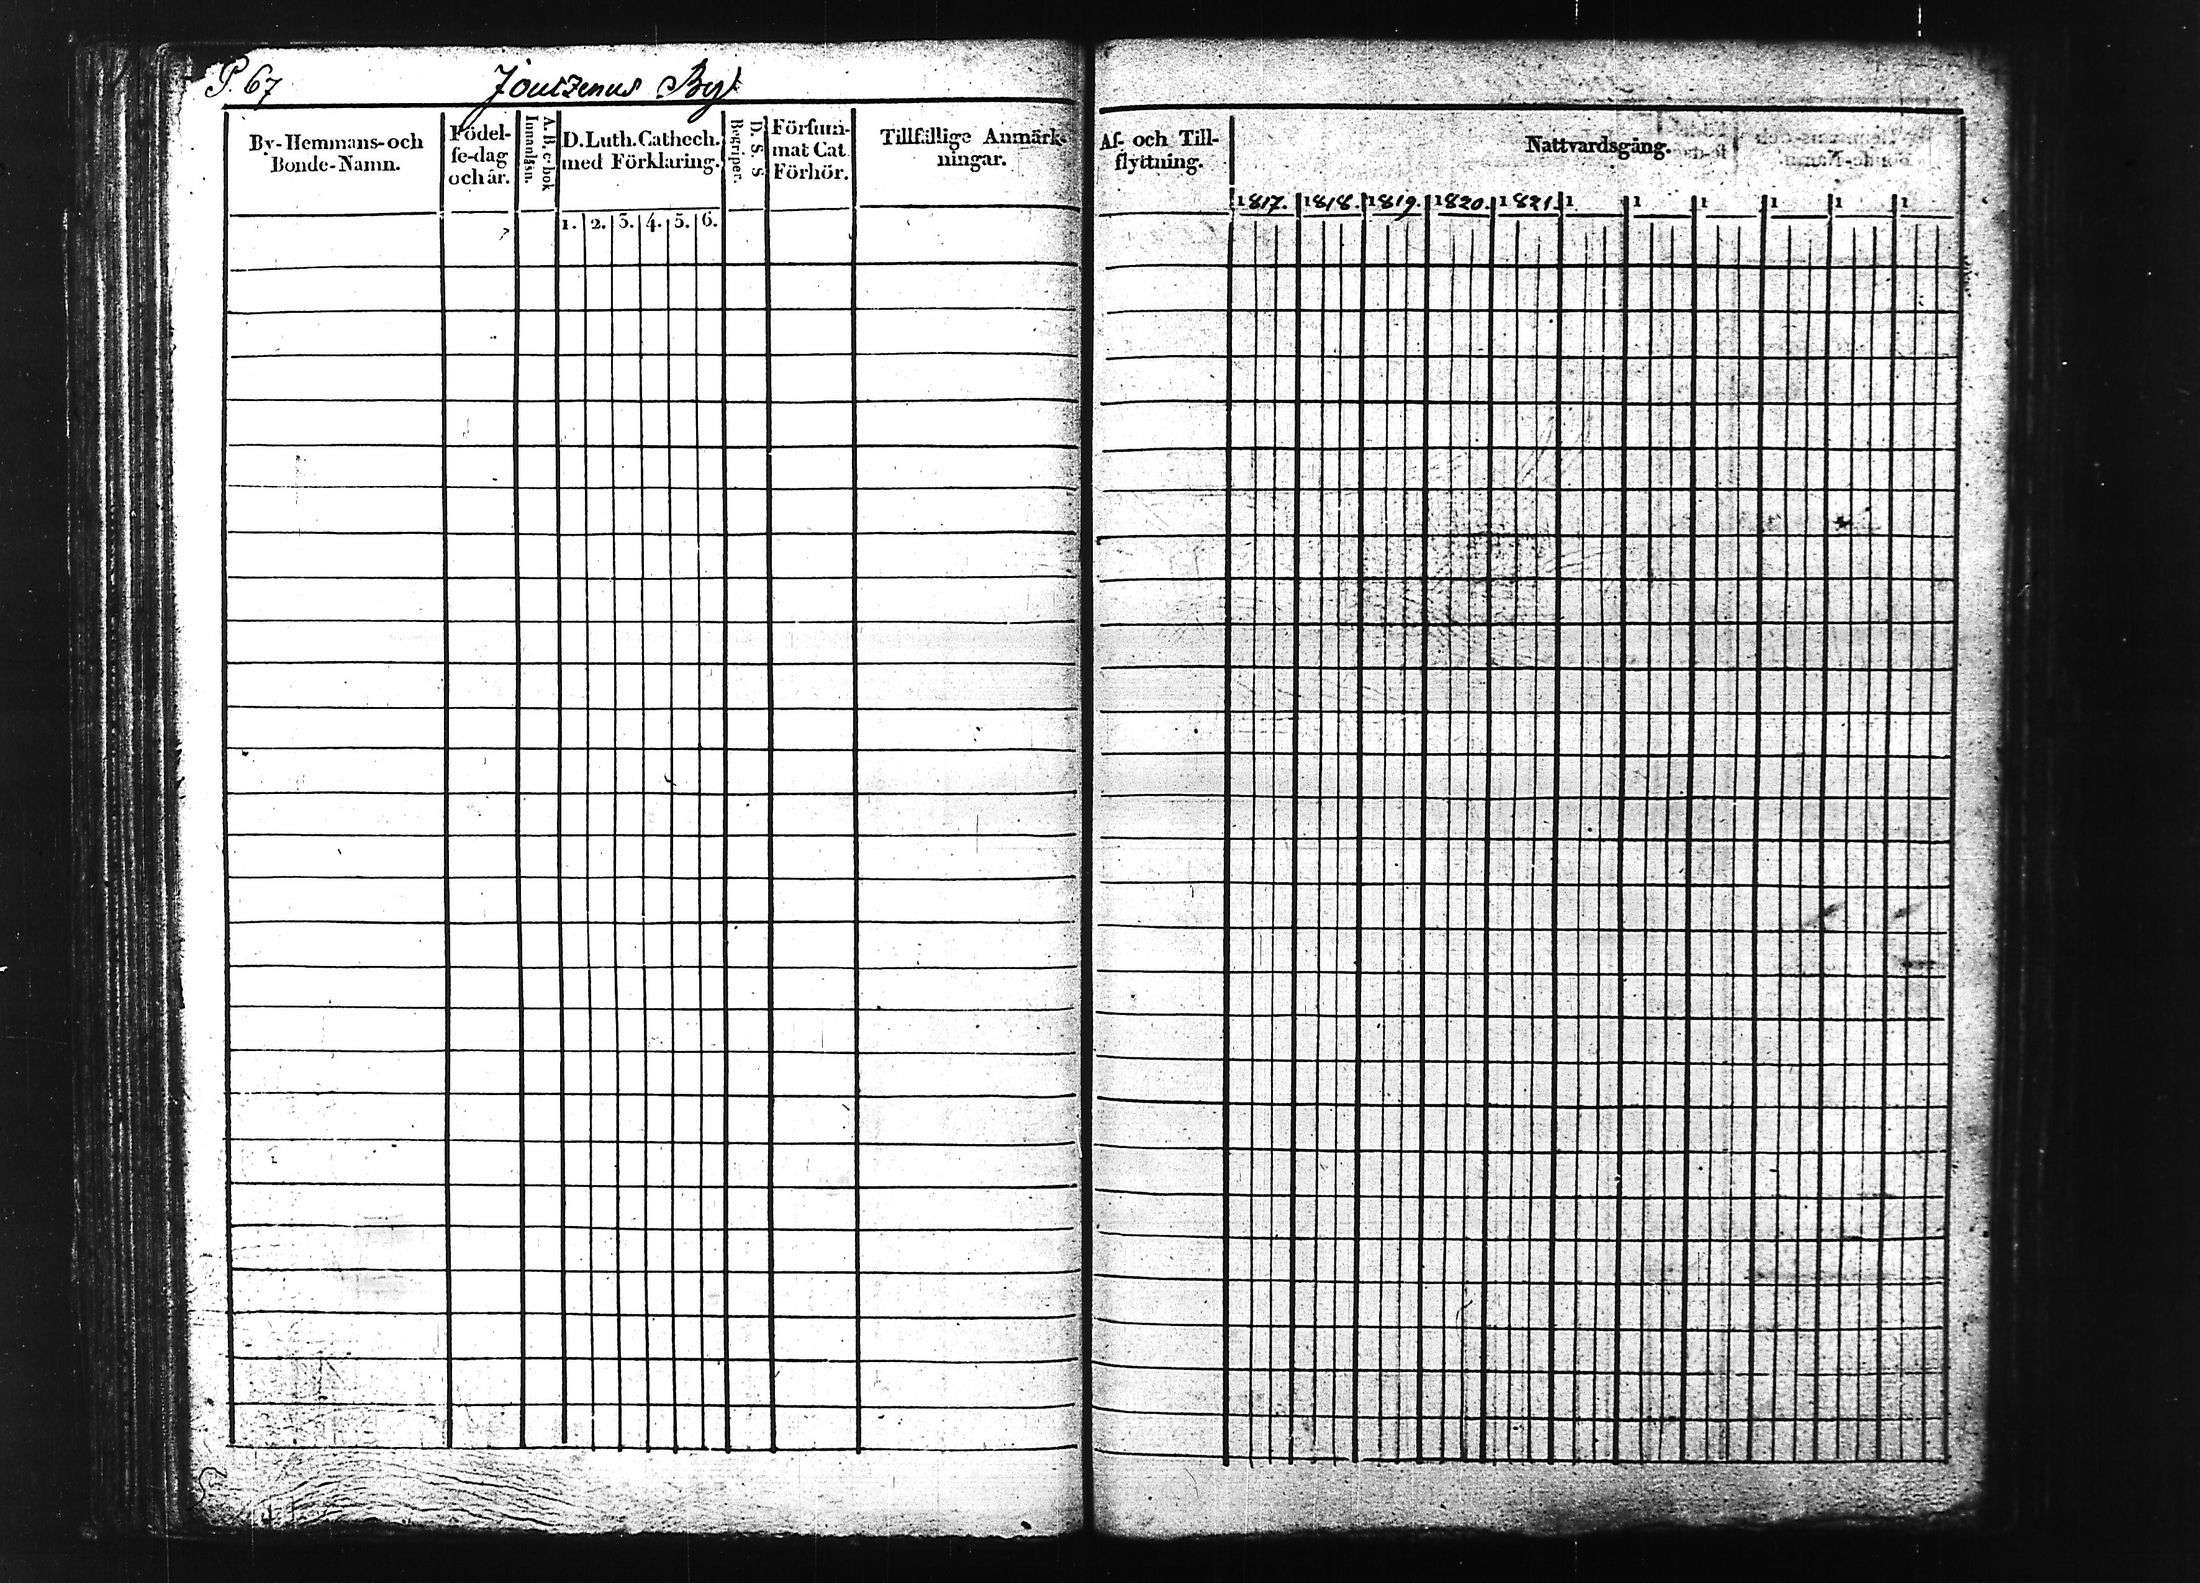 P. 67
Joutzenus By
By-Hemmans-och
Bonde-Namn.
Födel-
se-dag
och år.
A. B. c-bok
Innanläsn.
D. Luth. Cathech.
med Förklaring.
1. 2. 3. 4. 5. 6.
D. S. S
Begriper.
Försum-
mat Cat
Förhör.
Tillfällige Anmärk-
ningar.
Af- och Till-
flyttning.
Nattvardsgång.
1817. 1818. 1819. 1820. 1821. 1 1 1 1 1 1